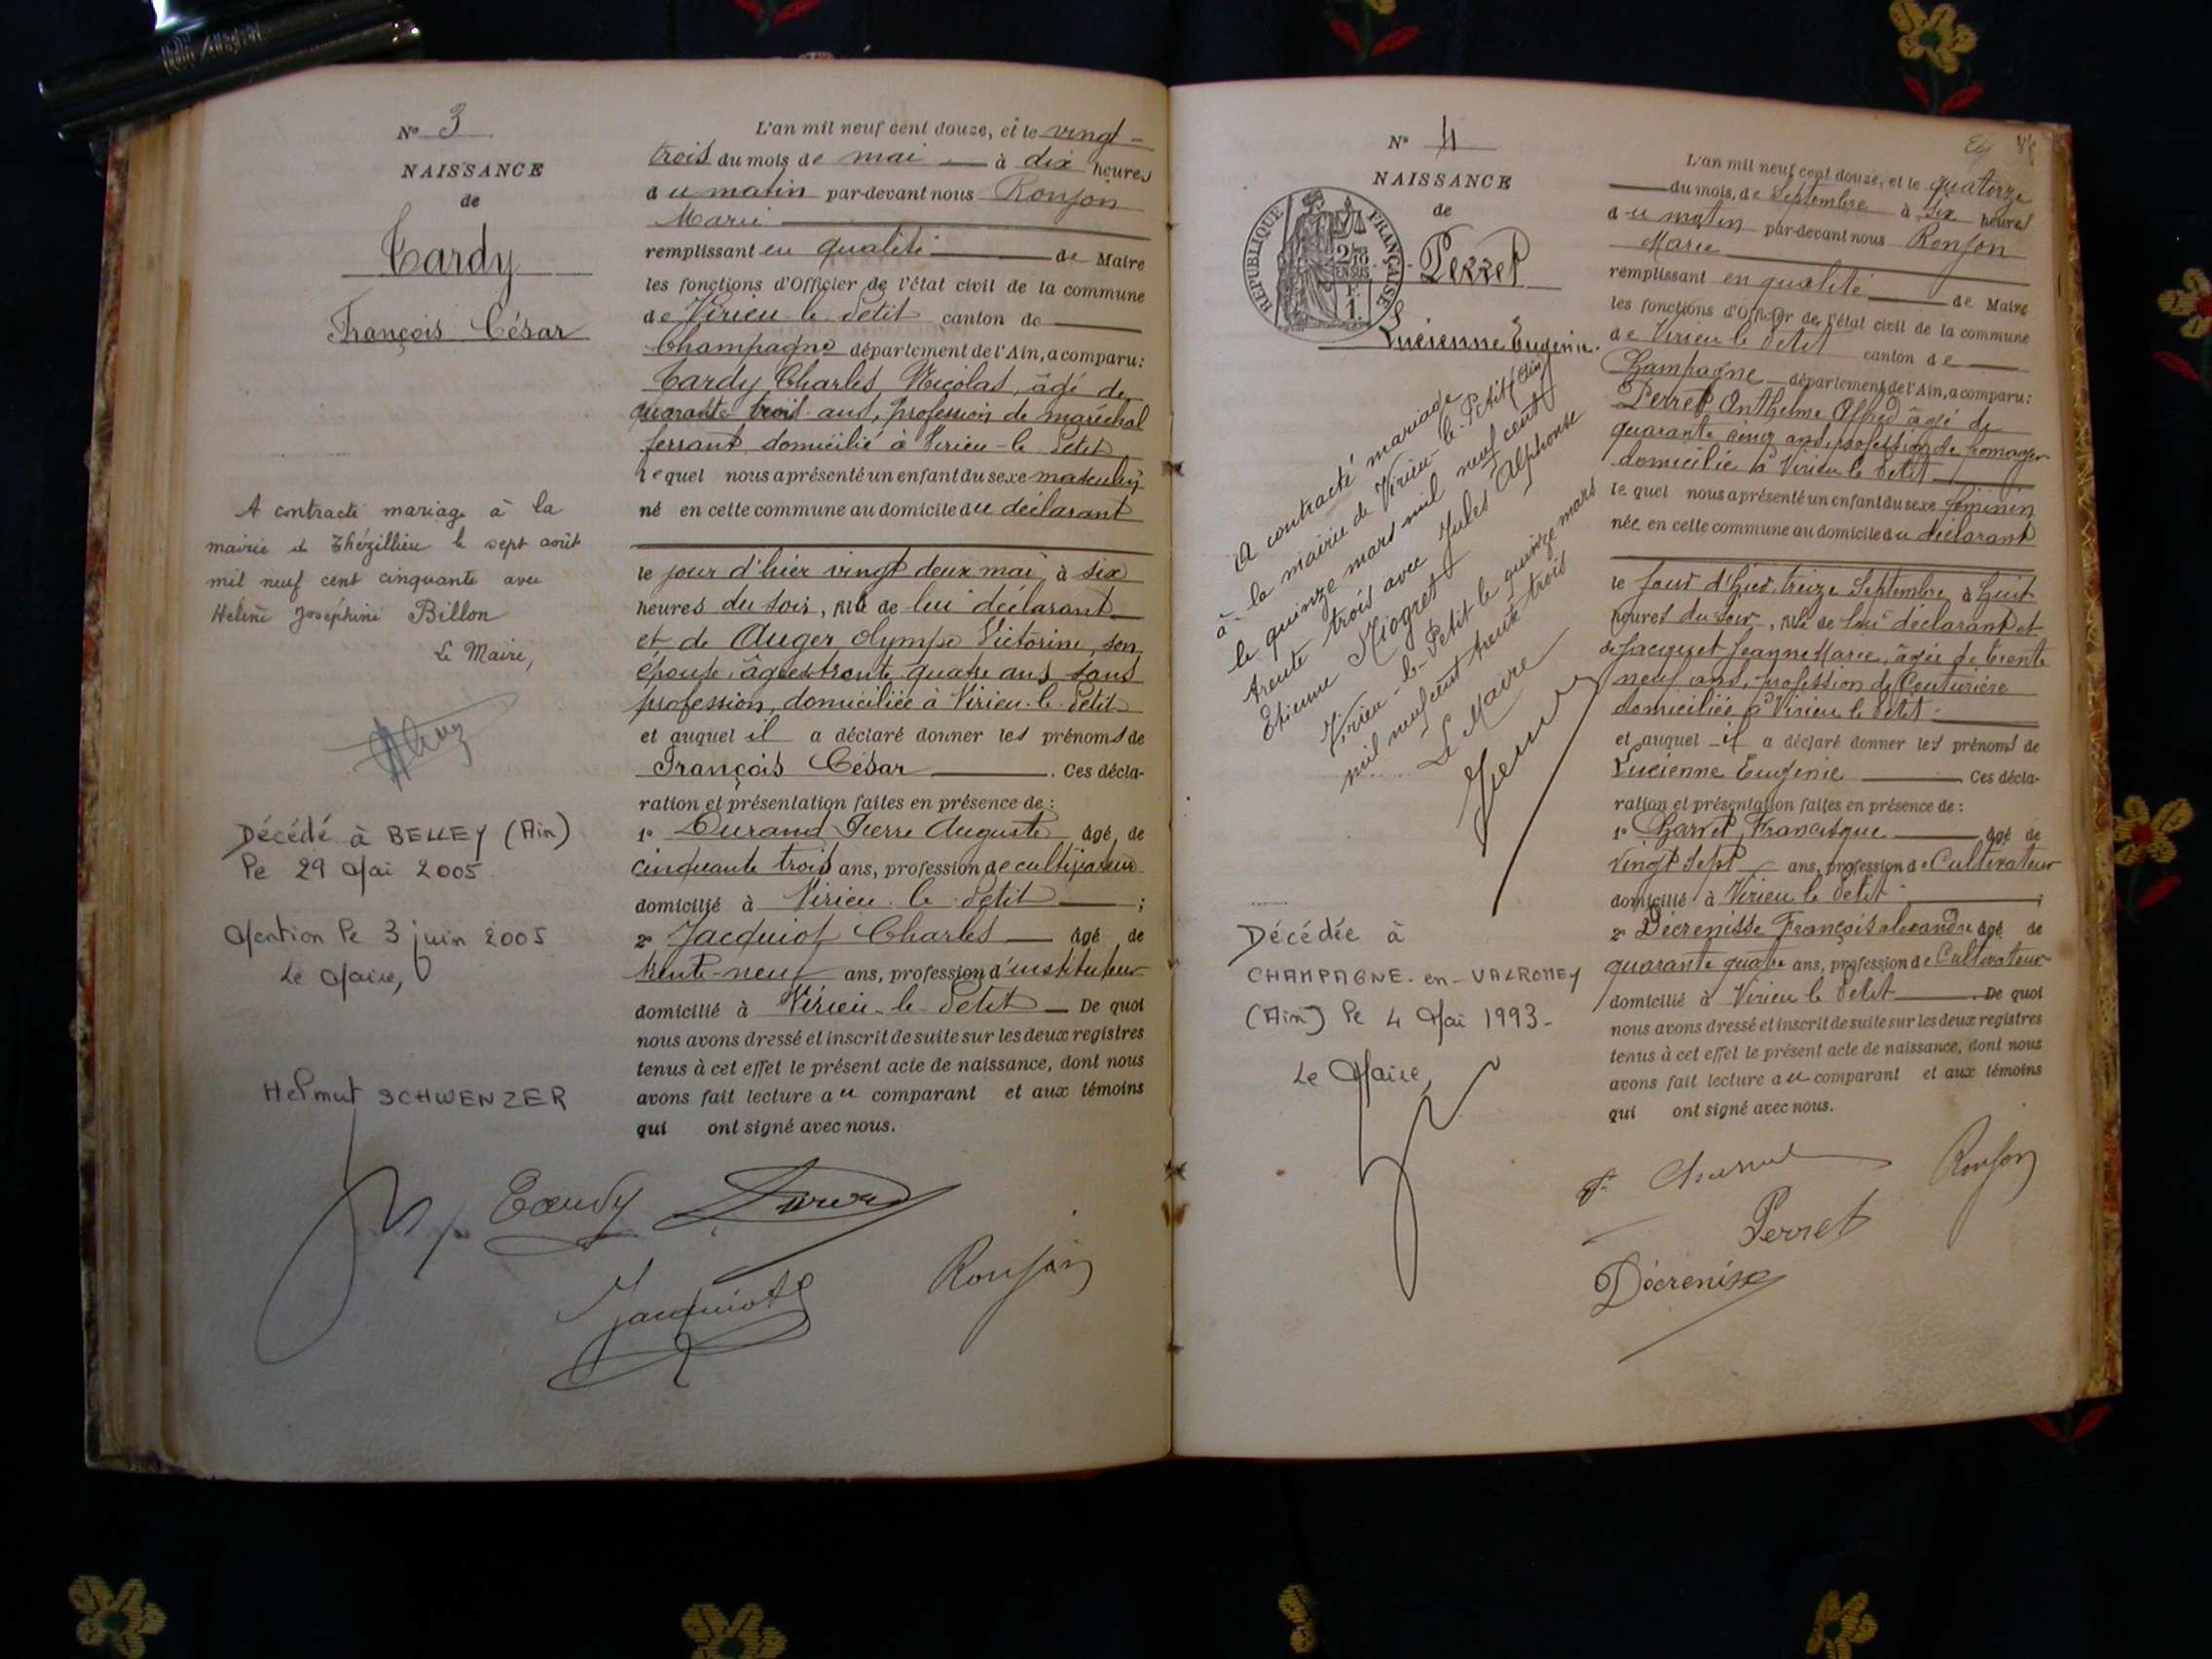 N° 3
NAISSANCE
de
Tardy
François César
A contracté mariage à la
mairie de Thézillieu le sept août
mil neuf cent cinquante avec
Hélène Joséphine Billon
Le Maire,
Décédé à BELLEY (Ain)
le 29 Mai 2005.
Mention le 3 juin 2005
Le Maire,
Helmut SCHWENZER
L'an mil neuf cent douze, et le vingt-
trois du mois de mai à dix heures
du matin par-devant nous Ronjon
Marie
remplissant en qualité de Maire
les fonctions d'Officier de l'état civil de la commune
de Virieu le Petit canton de
Champagne département de l'Ain, a comparu:
Tardy Charles Nicolas, âgé de
quarante-trois ans, profession de maréchal
ferrant domicilié à Virieu-le-Petit
lequel nous a présenté un enfant du sexe masculin
né en cette commune au domicile du déclarant
le jour d'hier vingt deux mai à six
heures du soir, fils de lui déclarant
et de Auger Olympe Victorine, son
épouse, âgée de trente quatre ans sans
profession, domiciliée à Virieu-le-Petit
et auquel il a déclaré donner les prénoms de
François César . Ces décla-
ration et présentation faites en présence de :
1° Durand Pierre Auguste âgé de
cinquante trois ans, profession de cultivateur
domicilié à Virieu le Petit ;
2° Jacquiot Charles âgé de
trente-neuf ans, profession d'instituteur
domicilié à Virieu-le-Petit De quoi
nous avons dressé et inscrit de suite sur les deux registres
tenus à cet effet le présent acte de naissance, dont nous
avons fait lecture au comparant et aux témoins
qui ont signé avec nous.
Tardy Durand
Jacquiot Ronjon
N° 4
NAISSANCE
de
RÉPUBLIQUE FRANÇAISE
2/10 EN SUS
1 F.
Perret
Lucienne Eugénie.
A contracté mariage
à la mairie de Virieu-le-Petit (Ain)
le quinze mars mil neuf cent
trente trois avec Jules Alphonse
Etienne Miogret
Virieu-le-Petit le quinze mars
mil neuf cent trente trois
Le Maire
Décédée à
CHAMPAGNE-en-VALROMEY
(Ain) le 4 Mai 1993-
Le Maire,
L'an mil neuf cent douze, et le quatorze
du mois de Septembre à six heures
du matin par-devant nous Ronjon
Marie
remplissant en qualité de Maire
les fonctions d'Officier de l'état civil de la commune
de Virieu le Petit canton de
Champagne département de l'Ain, a comparu:
Perret Anthelme Alfred âgé de
quarante cinq ans, profession de fromager
domicilié à Virieu le Petit
lequel nous a présenté un enfant du sexe féminin
née en cette commune au domicile du déclarant
le jour d'hier treize Septembre à huit
heures du soir, fille de lui déclarant et
de Jacquet Jeanne Marie, âgée de trente
neuf ans, profession de Couturière
domiciliée à Virieu le Petit
et auquel il a déclaré donner les prénoms de
Lucienne Eugénie Ces décla-
ration et présentation faites en présence de :
1° Charvet Francisque âgé de
vingt sept ans, profession de Cultivateur
domicilié à Virieu le Petit ;
2° Décrenisse François alexandre âgé de
quarante quatre ans, profession de Cultivateur
domicilié à Virieu le Petit . De quoi
nous avons dressé et inscrit de suite sur les deux registres
tenus à cet effet le présent acte de naissance, dont nous
avons fait lecture au comparant et aux témoins
qui ont signé avec nous.
Ronjon
Perret
Décrenisse